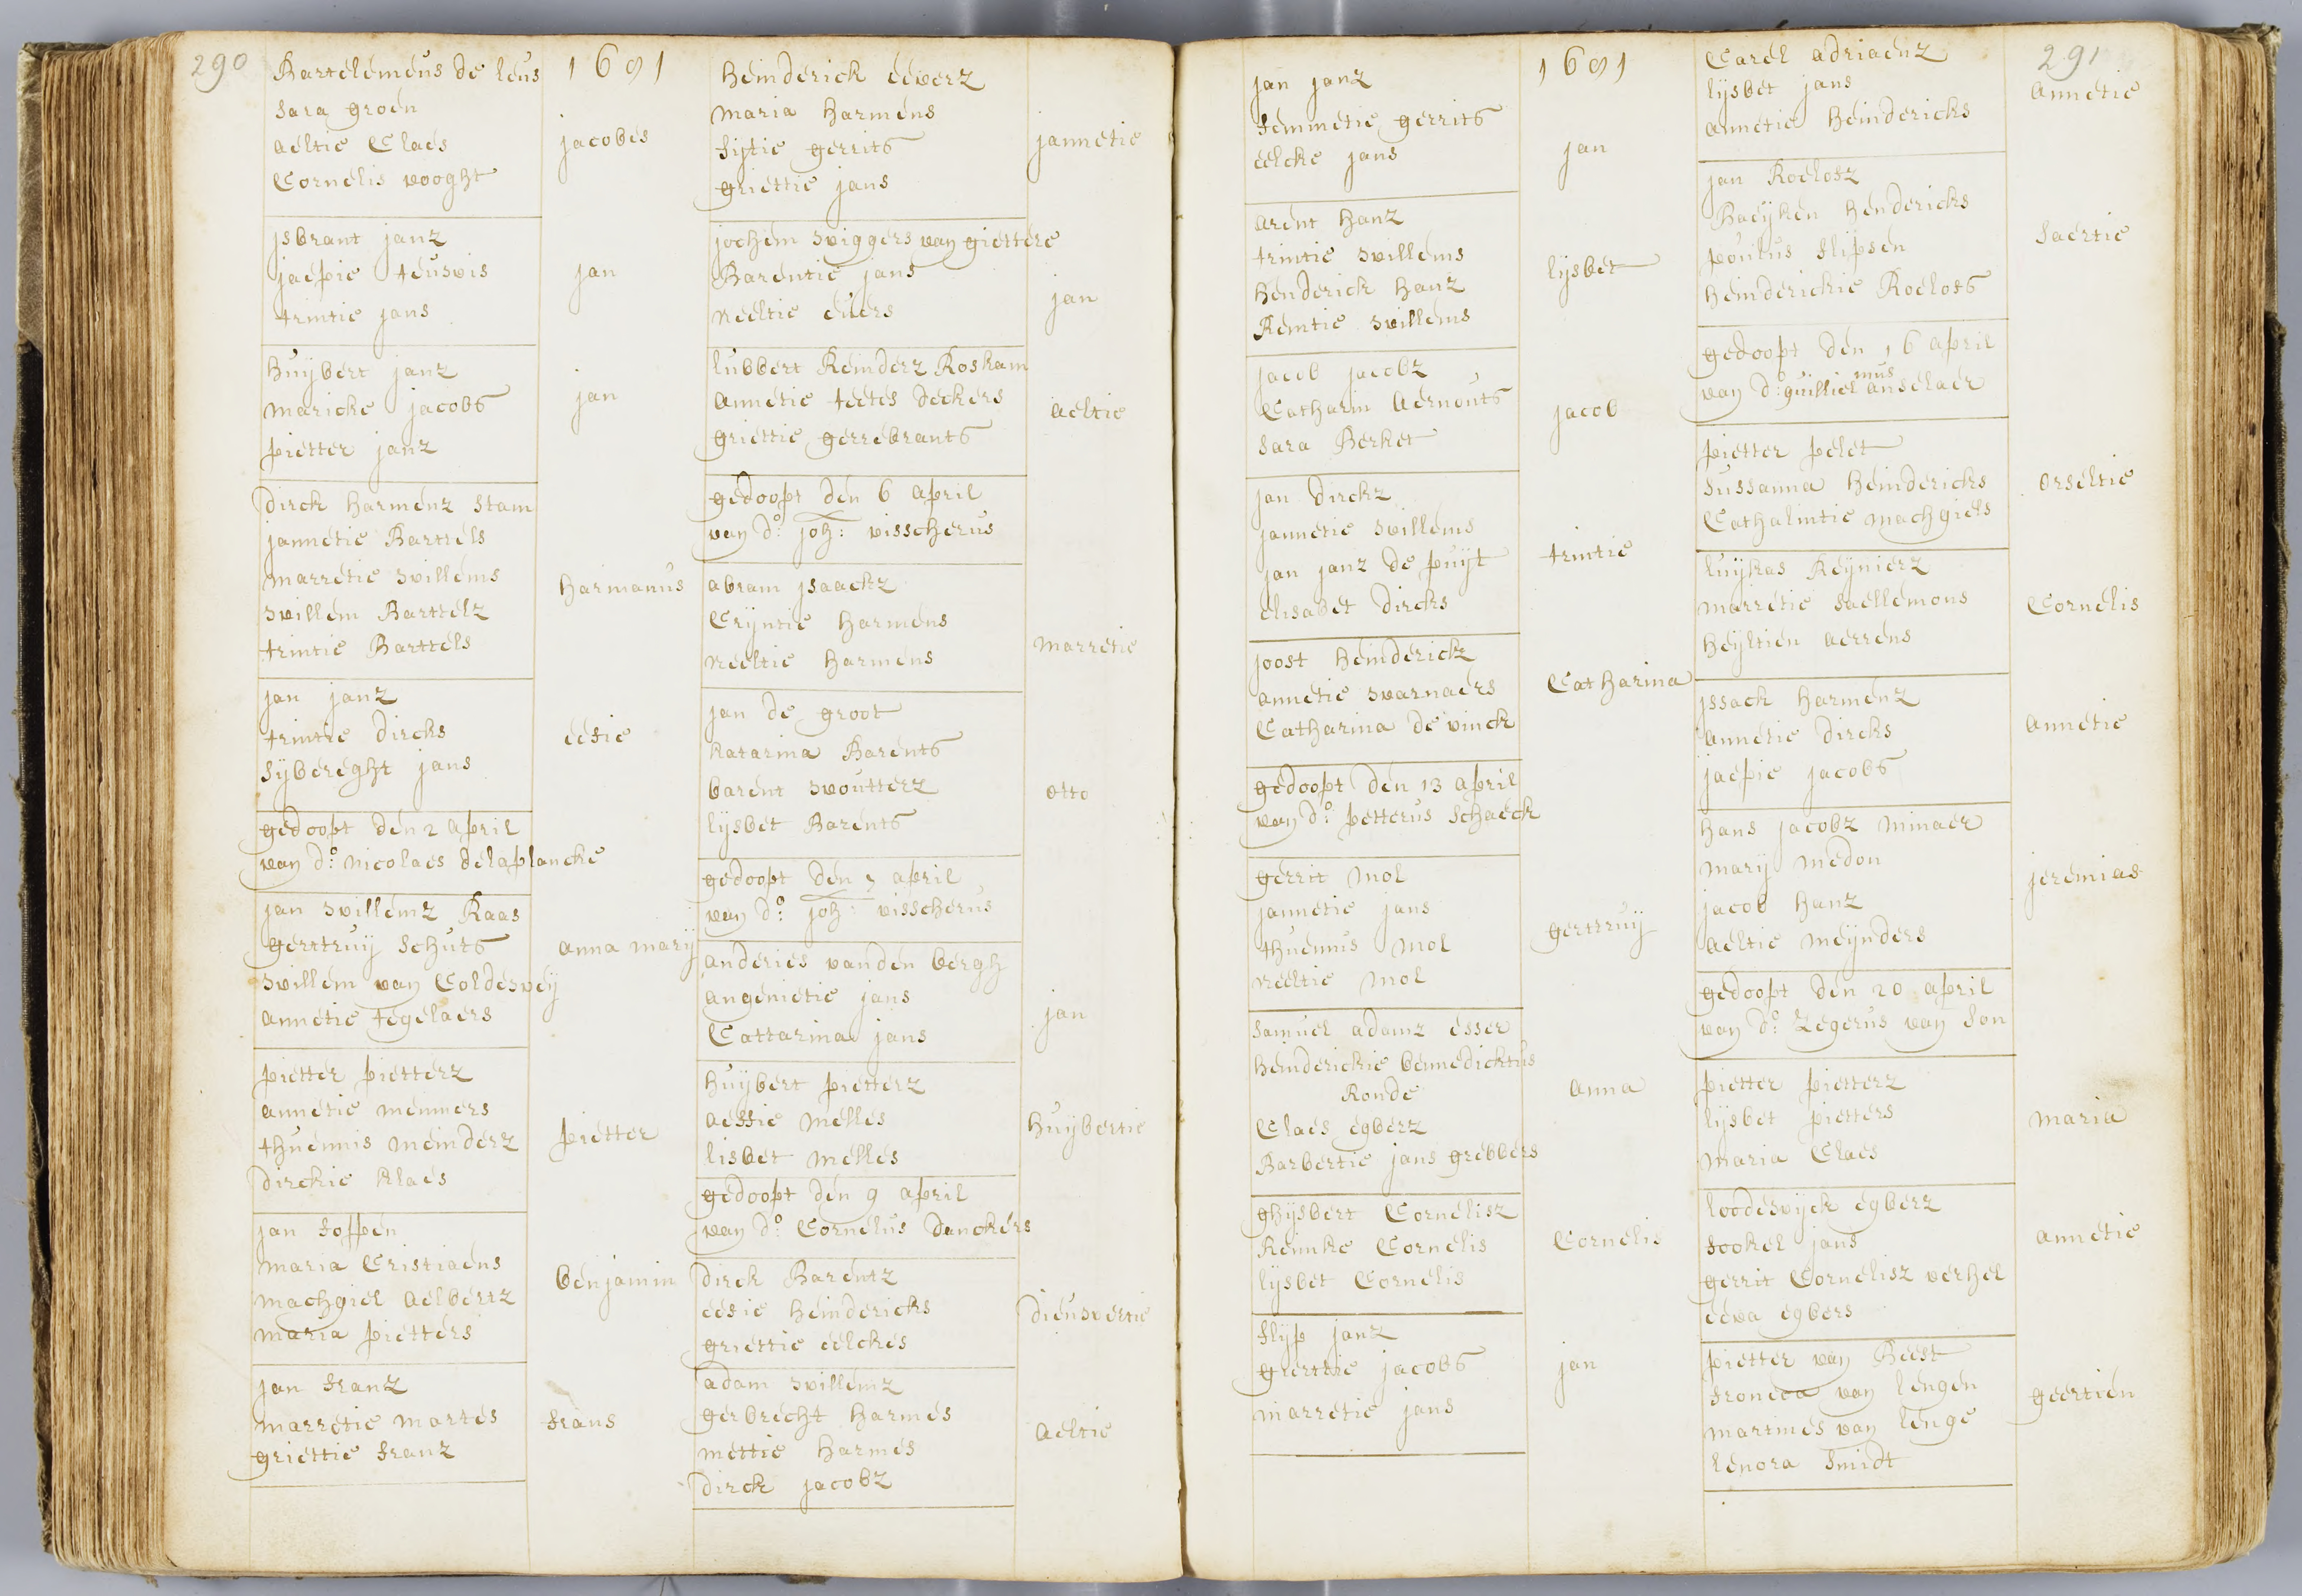 290
Bartelemeus de leus
1691
sara groen
aeltie Claes
jacobes
Cornelis vooght
jsbrant janz
jaepie teuwis
jan
trintie jans
huijbert janz
maricke jacobs
jan
pietter janz
dirck harmenz stam
jannetie Bartels
marretie willems
harmanus
willem Barttelz
trintie Barttels
jan janz
trintie dircks
eesie
sijbereght jans
gedoopt den 2 april
van do: nicolaes delaplancke
jan willemz Raas
gerttruij schuts
anna marij
willem van Coldeweij
annetie tegelaers
pietter pietterz
annetie meinners
thuennis meinderz
pietter
dirckie klaes
jan foppen
maria Cristiaens
machgiel aelbertz
benjamin
maria pietters
jan franz
marretie martes
frans
griettie franz
heinderick eeverz
maria harmens
fijtie gerrits
jannetie
griettie jans
jochem wiggers van giettere
Barentie jans
jan
neeltie evers
lubbert Reinderz Roskam
annetie teetes deckers
aeltie
griettie gerrebrants
gedoopt den 6 april
van do: joh: visscherus
abram jsaackz
Crijntie harmens
marretie
neeltie harmens
jan de groot
katarina Barents
barent woutterz
otto
lijsbet Barents
gedoopt den 7 april
van do: joh: visscherus
anderies vanden bergh
angenietie jans
jan
Cattarina jans
huijbert pietterz
aeffie melles
huijbertie
lisbet melles
gedoopt den 9 april
van do: Cornelus danckers
dirck Barentz
eesie heindericks
dieuwertie
griettie eelckes
adam willemz
gerbrecht harmes
aeltie
mettie harmes
dirck jacobz
jan janz
1691
femmetie gerrits
jan
eelcke jans
arent hanz
trintie willems
lijsbet
henderick hanz
Remtie willems
jacob jacobz
Catharin aernouts
jacob
sara Berket
jan dirckz
jannetie willems
trintie
jan janz de puijt
elisabet dircks
joost heinderickz
annetie warnaers
Catharina
Catharina de vinck
gedoopt den 13 april
van do: petterus schaeck
gerrit mol
jannetie jans
gerttruij
thuennus mol
neeltie mol
samuel adamz esser
heinderickie bennedicktus
Ronde
anna
Claes egberz
Barbertie jans grebbers
ghijsbert Cornelisz
Reinke Cornelis
Cornelis
lijsbet Cornelis
flyp janz
grerttie jacobs
jan
marretie jans
Carel adriaenz
291
lijsbet jans
annetie
annetie heindericks
jan Roelofz
Baeijken hendericks
saertie
poulus flipsen
heinderickie Roelofs
gedoopt den 16 april
van do: guilliel mus anselaer
pietter pelet
sussanna heindericks
orseltie
Cathalintie machgiels
luijkas Reijnierz
marretie saellemons
Cornelis
heijltien aerrens
jssack harmenz
annetie dircks
annetie
jaepie jacobs
hans jacobz minaer
marij medon
jeremias
jacob hanz
aeltie meijnders
gedoopt den 20 april
van do: Zegerus van son
pietter pietterz
lijsbet pietters
maria
maria Claes
loodewijck egberz
fookel jans
annetie
gerrit Cornelisz verhel
eeva egbers
pietter van Beest
froneca van lengen
geertien
martines van lenge
lenora smidt